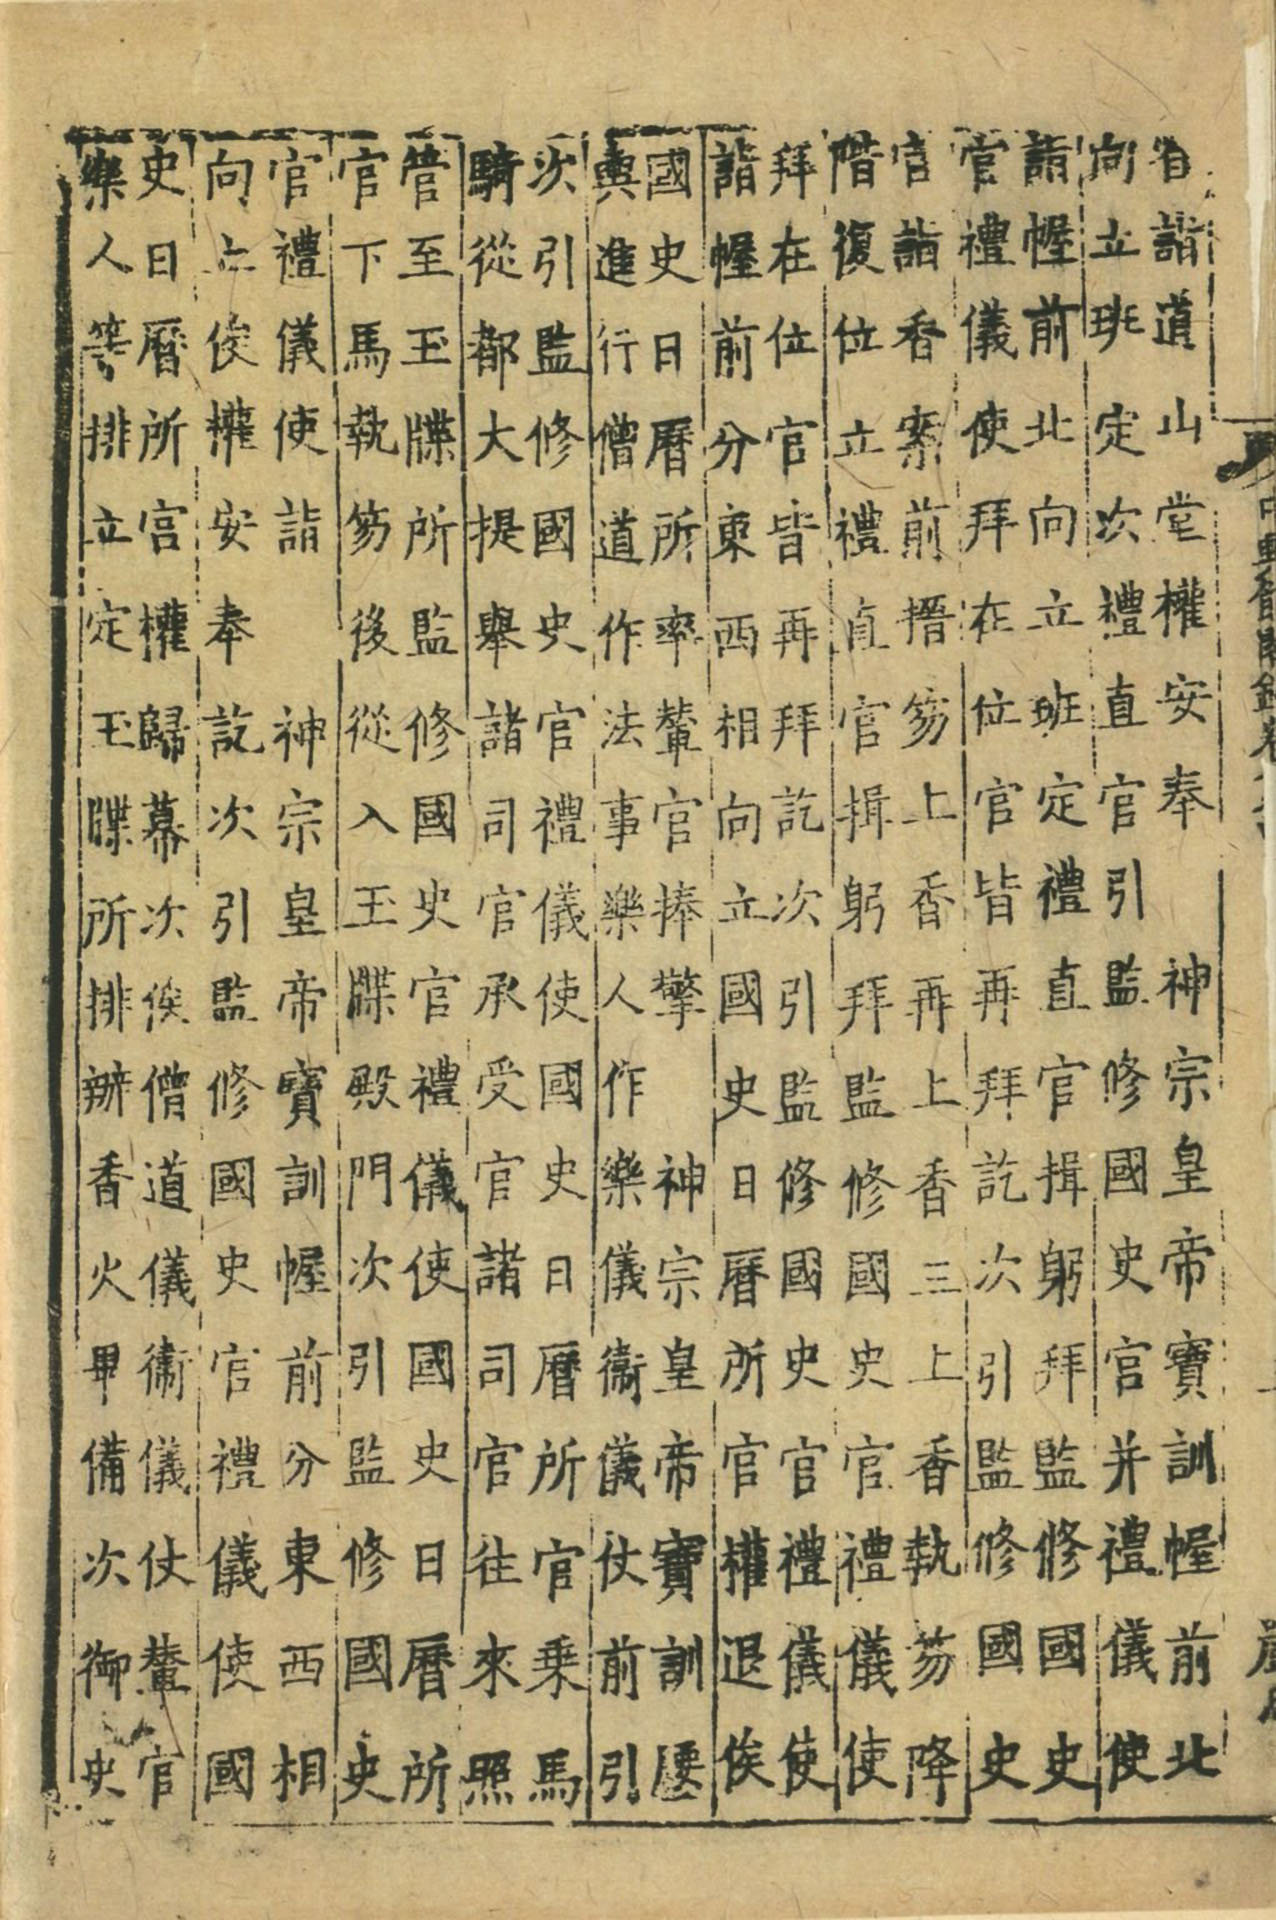 省詣道山堂權安奉　神宗皇帝寶訓幄前北
向立班定次禮直官引監修國史官并禮儀使
詣幄前北向立班定禮直官揖躬拜監修國史
官禮儀使拜在位官皆再拜訖次引監修國史
官詣香案前搢笏上香再上香三上香執笏降
階復位立禮直官揖躬拜監修國史官禮儀使
拜在位官皆再拜訖次引監修國史官禮儀使
詣幄前分東西相向立國史日曆所官權退俟
國史日曆所率輦官捧擎　神宗皇帝寶訓腰
輿進行僧道作法事樂人作樂儀衛儀仗前引
次引監修國史官禮儀使國史日曆所官乗馬
騎從都大提舉諸司官承受官諸司官往來照
管至玉牒所監修國史官禮儀使國史日曆所
官下馬執笏後從入玉牒殿門次引監修國史
官禮儀使詣　神宗皇帝寶訓幄前分東西相
向立俟權安奉訖次引監修國史官禮儀使國
史日曆所官權歸幕次俟僧道儀衛儀仗輦官
樂人等排立定玉牒所排辦香火畢備次御史